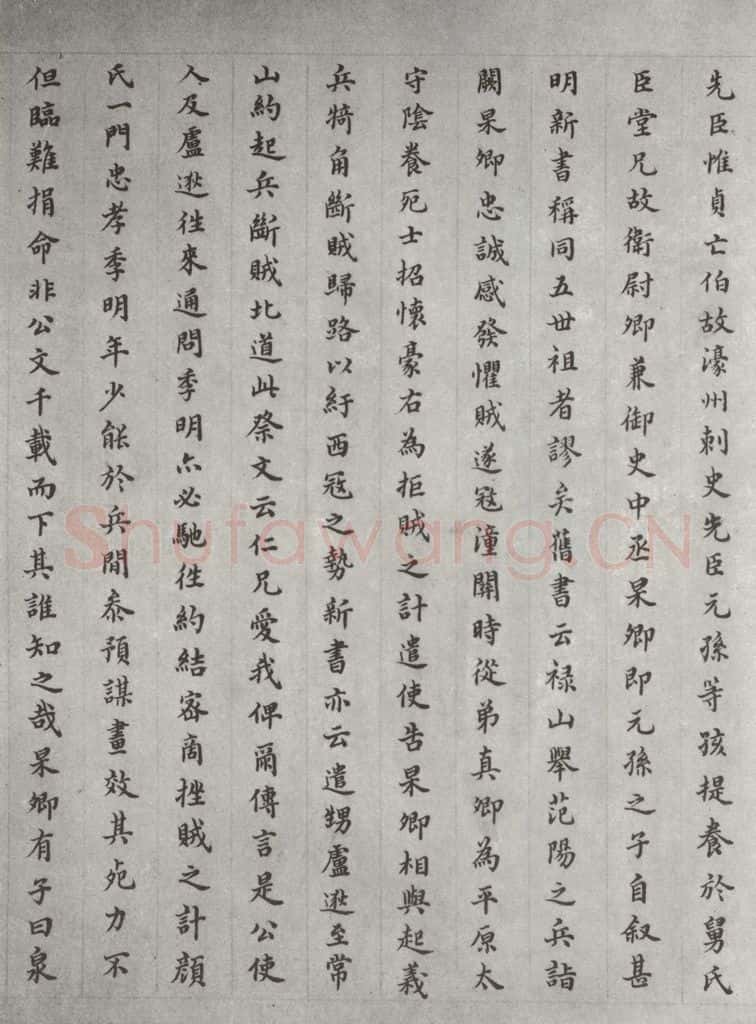 先臣惟貞亡伯故濠州刺史先臣元孫等孩提養於舅氏
臣堂兄故衛尉卿兼御史中丞杲卿即元孫之子自叙甚
明新書稱同五世祖者謬矣舊書云禄山舉范陽之兵詣
闕杲卿忠誠感發懼賊遂寇潼關時從弟真卿為平原太
守陰養死士招懷豪右為拒賊之計遣使告杲卿相與起義
兵犄角斷賊歸路以紓西寇之勢新書亦云遣甥盧逖至常
山約起兵斷賊北道此祭文云仁兄愛我俾爾傳言是公使
人及盧逖往來通問季明亦必馳往約結密商挫賊之計顔
氏一門忠孝季明年少能於兵間叅預謀畫效其死力不
但臨難捐命非公文千載而下其誰知之哉杲卿有子曰泉
Shufawang.CN